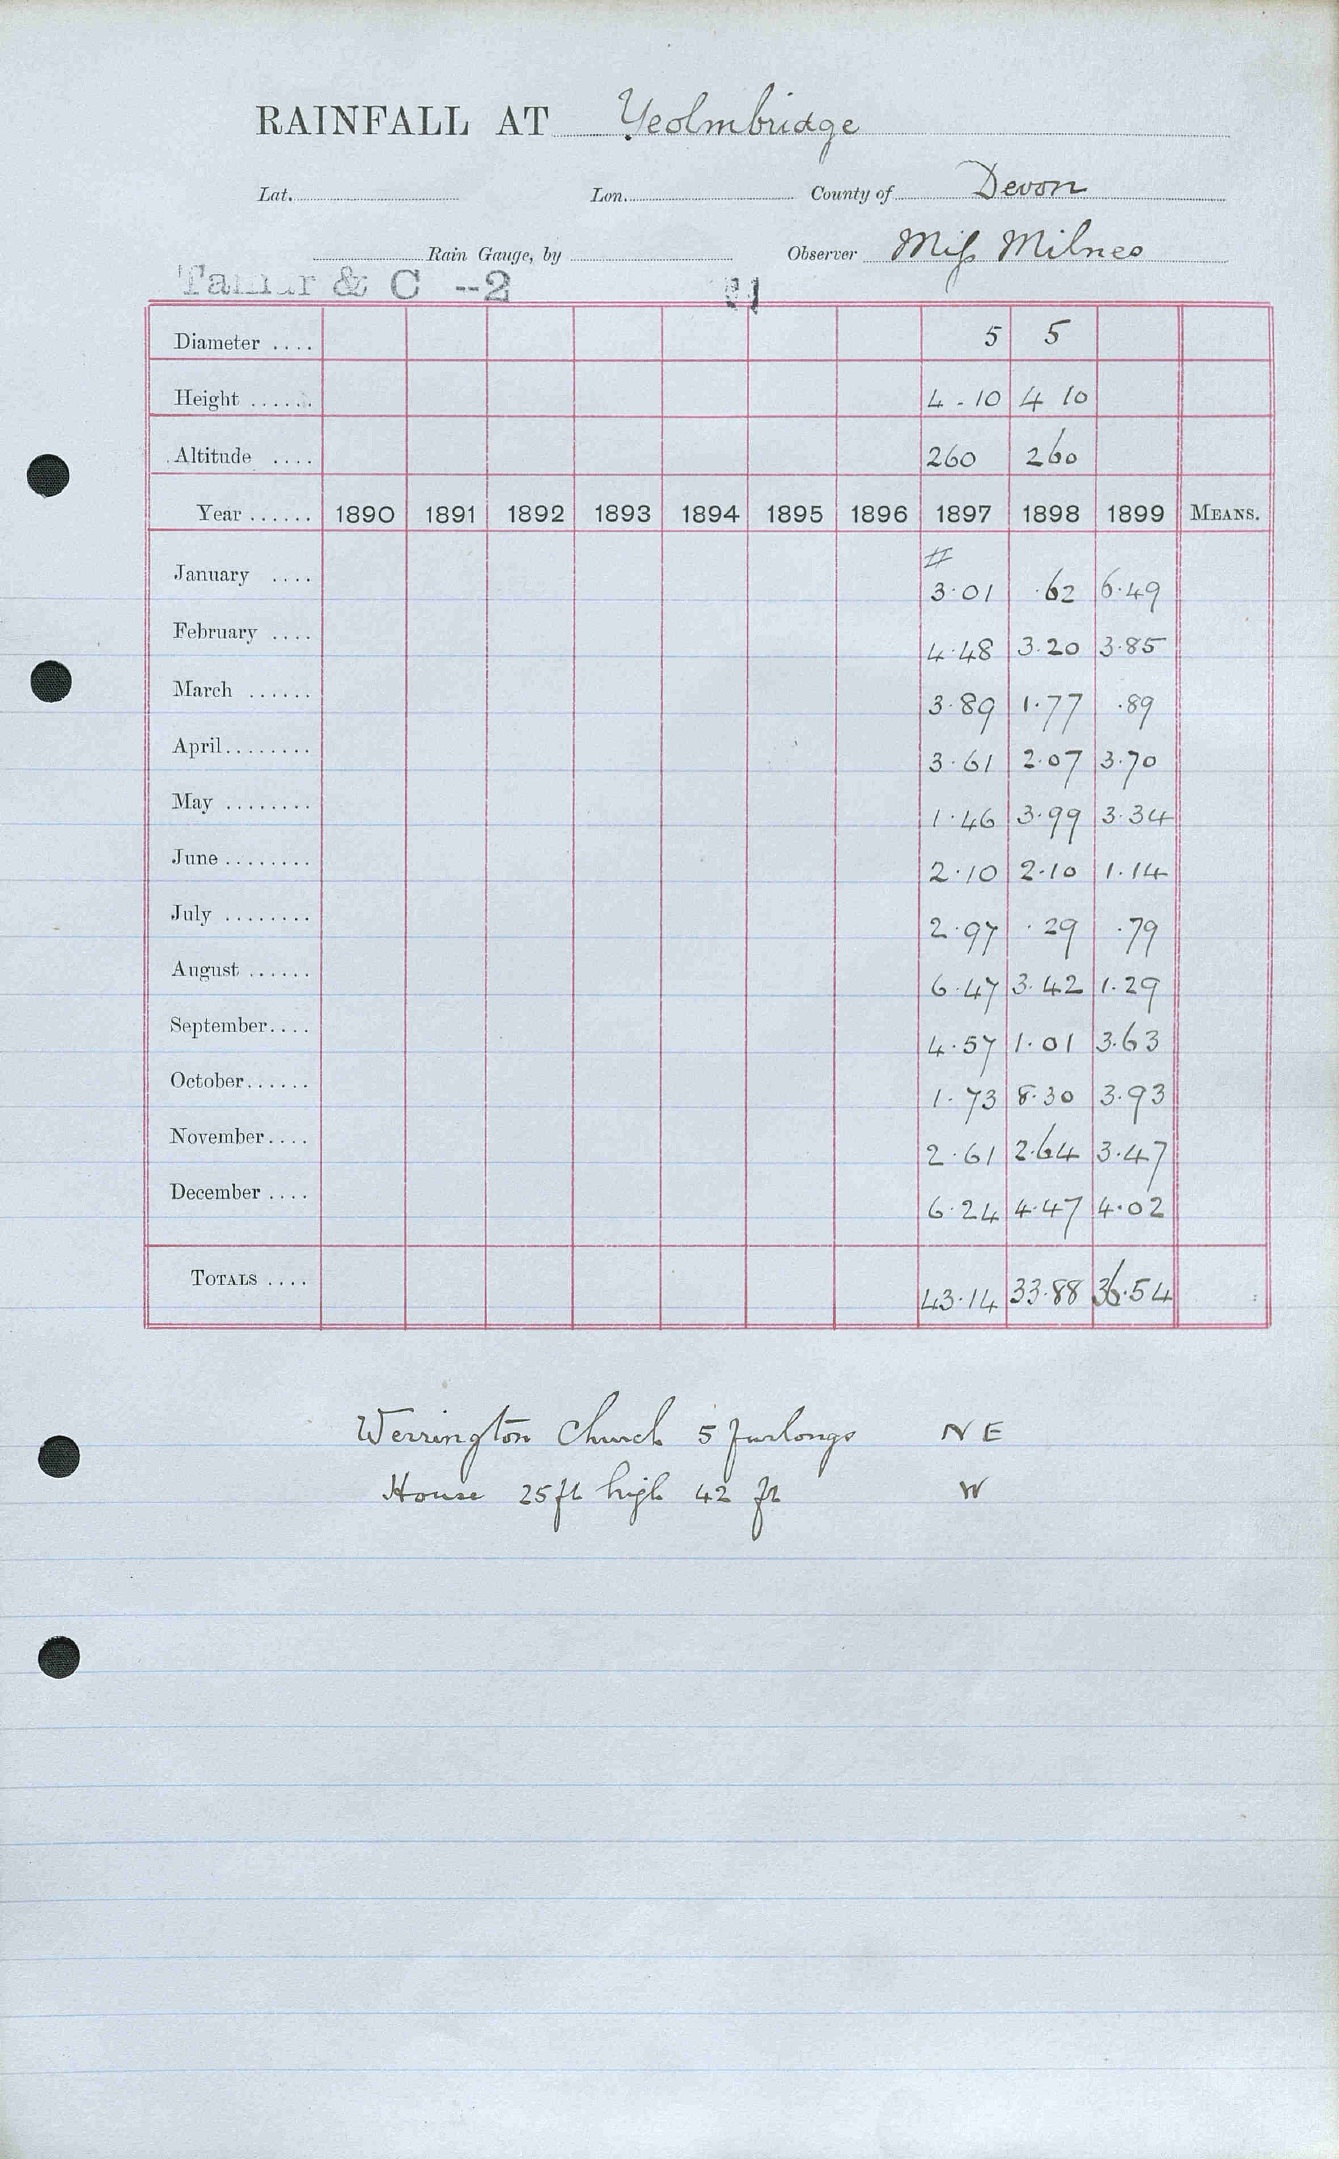 RAINFALL AT Yeolmbridge
Lat. Lon. County of Devon
Rain Gauge, by Observer Miſs Milnes
Tamar & C --2
Diameter .... 5 5
Height ...... 4 - 10 4 10
Altitude .... 260 260
Year ...... 1890 1891 1892 1893 1894 1895 1896 1897 1898 1899 MEANS.
#
January .... 3·01 ·62 6·49
February .... 4·48 3·20 3·85
March ...... 3·89 1·77 ·89
April........ 3·61 2·07 3·70
May ........ 1·46 3·99 3·34
June ........ 2·10 2·10 1·14
July ........ 2·97 ·29 ·79
August ...... 6·47 3·42 1·29
September.... 4·57 1·01 3·63
October...... 1·73 8·30 3·93
November.... 2·61 2·64 3·47
December .... 6·24 4·47 4·02
TOTALS .... 43·14 33·88 36·54
Werrington Church 5 furlongs NE
House 25ft high 42 ft W